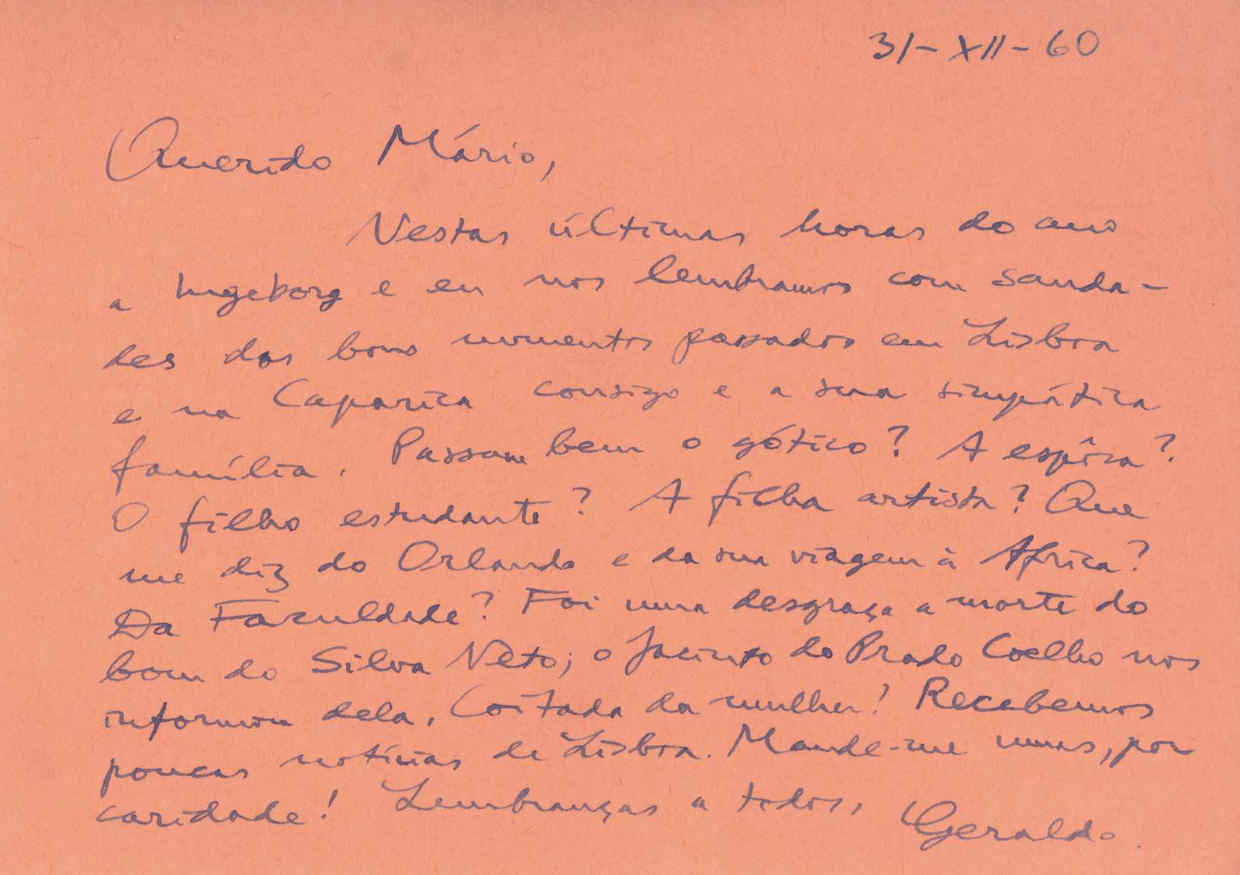 31-XII-60
Querido Mário,
Nestas últimas horas do ano
a Ingeborg e eu nos lembramos com sauda-
des dos bons momentos passados em Lisboa
e na Caparica consigo e a sua simpática
família. Passam bem o gótico? A espôsa?
O filho estudante? A filha artista? Que
me diz do Orlando e da sua viagem à Africa?
Da Faculdade? Foi uma desgraça a morte do
bom do Silva Neto; o Jacinto do Prado Coelho nos
informou dela. Coitada da mulher! Recebemos
poucas notícias de Lisboa. Mande-me umas, por
caridade! Lembranças a todos, Geraldo.